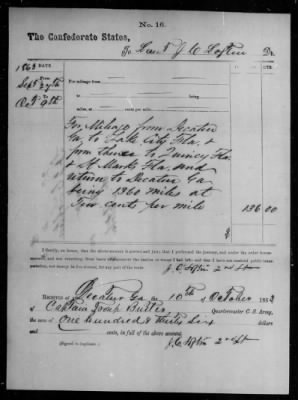 No. 16.
The Confederate States,
To Lieut J. C. Loftin Dr.
1863 DATE
From Sept 27th For mileage from to
To Oct 9th being
miles, at cents per mile.
For Mileage from Decatur
Ga. to Lake City Fla. &
from thence to Quincy Fla.
& St. Marks Fla. and
return to Decatur Ga.
being 1360 miles at
Ten cents per mile 136 00
I certify, on honor, that the above account is correct and just; that I performed the journey, and under the order
J. C. Loftin 2nd Lt
RECEIVED at Decatur Ga the 10th of October 1863
of Captain Quartermaster C. S. Army,
the sum of One hundred & thirty six dollars
and cents, in full of the above account.
(Signed in duplicate.) J. C. Loftin 2nd Lt